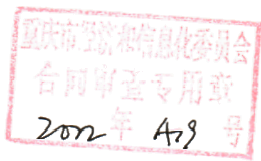 重庆市经济和信息化委员会
合同审查专用章
2022 年 A29 号